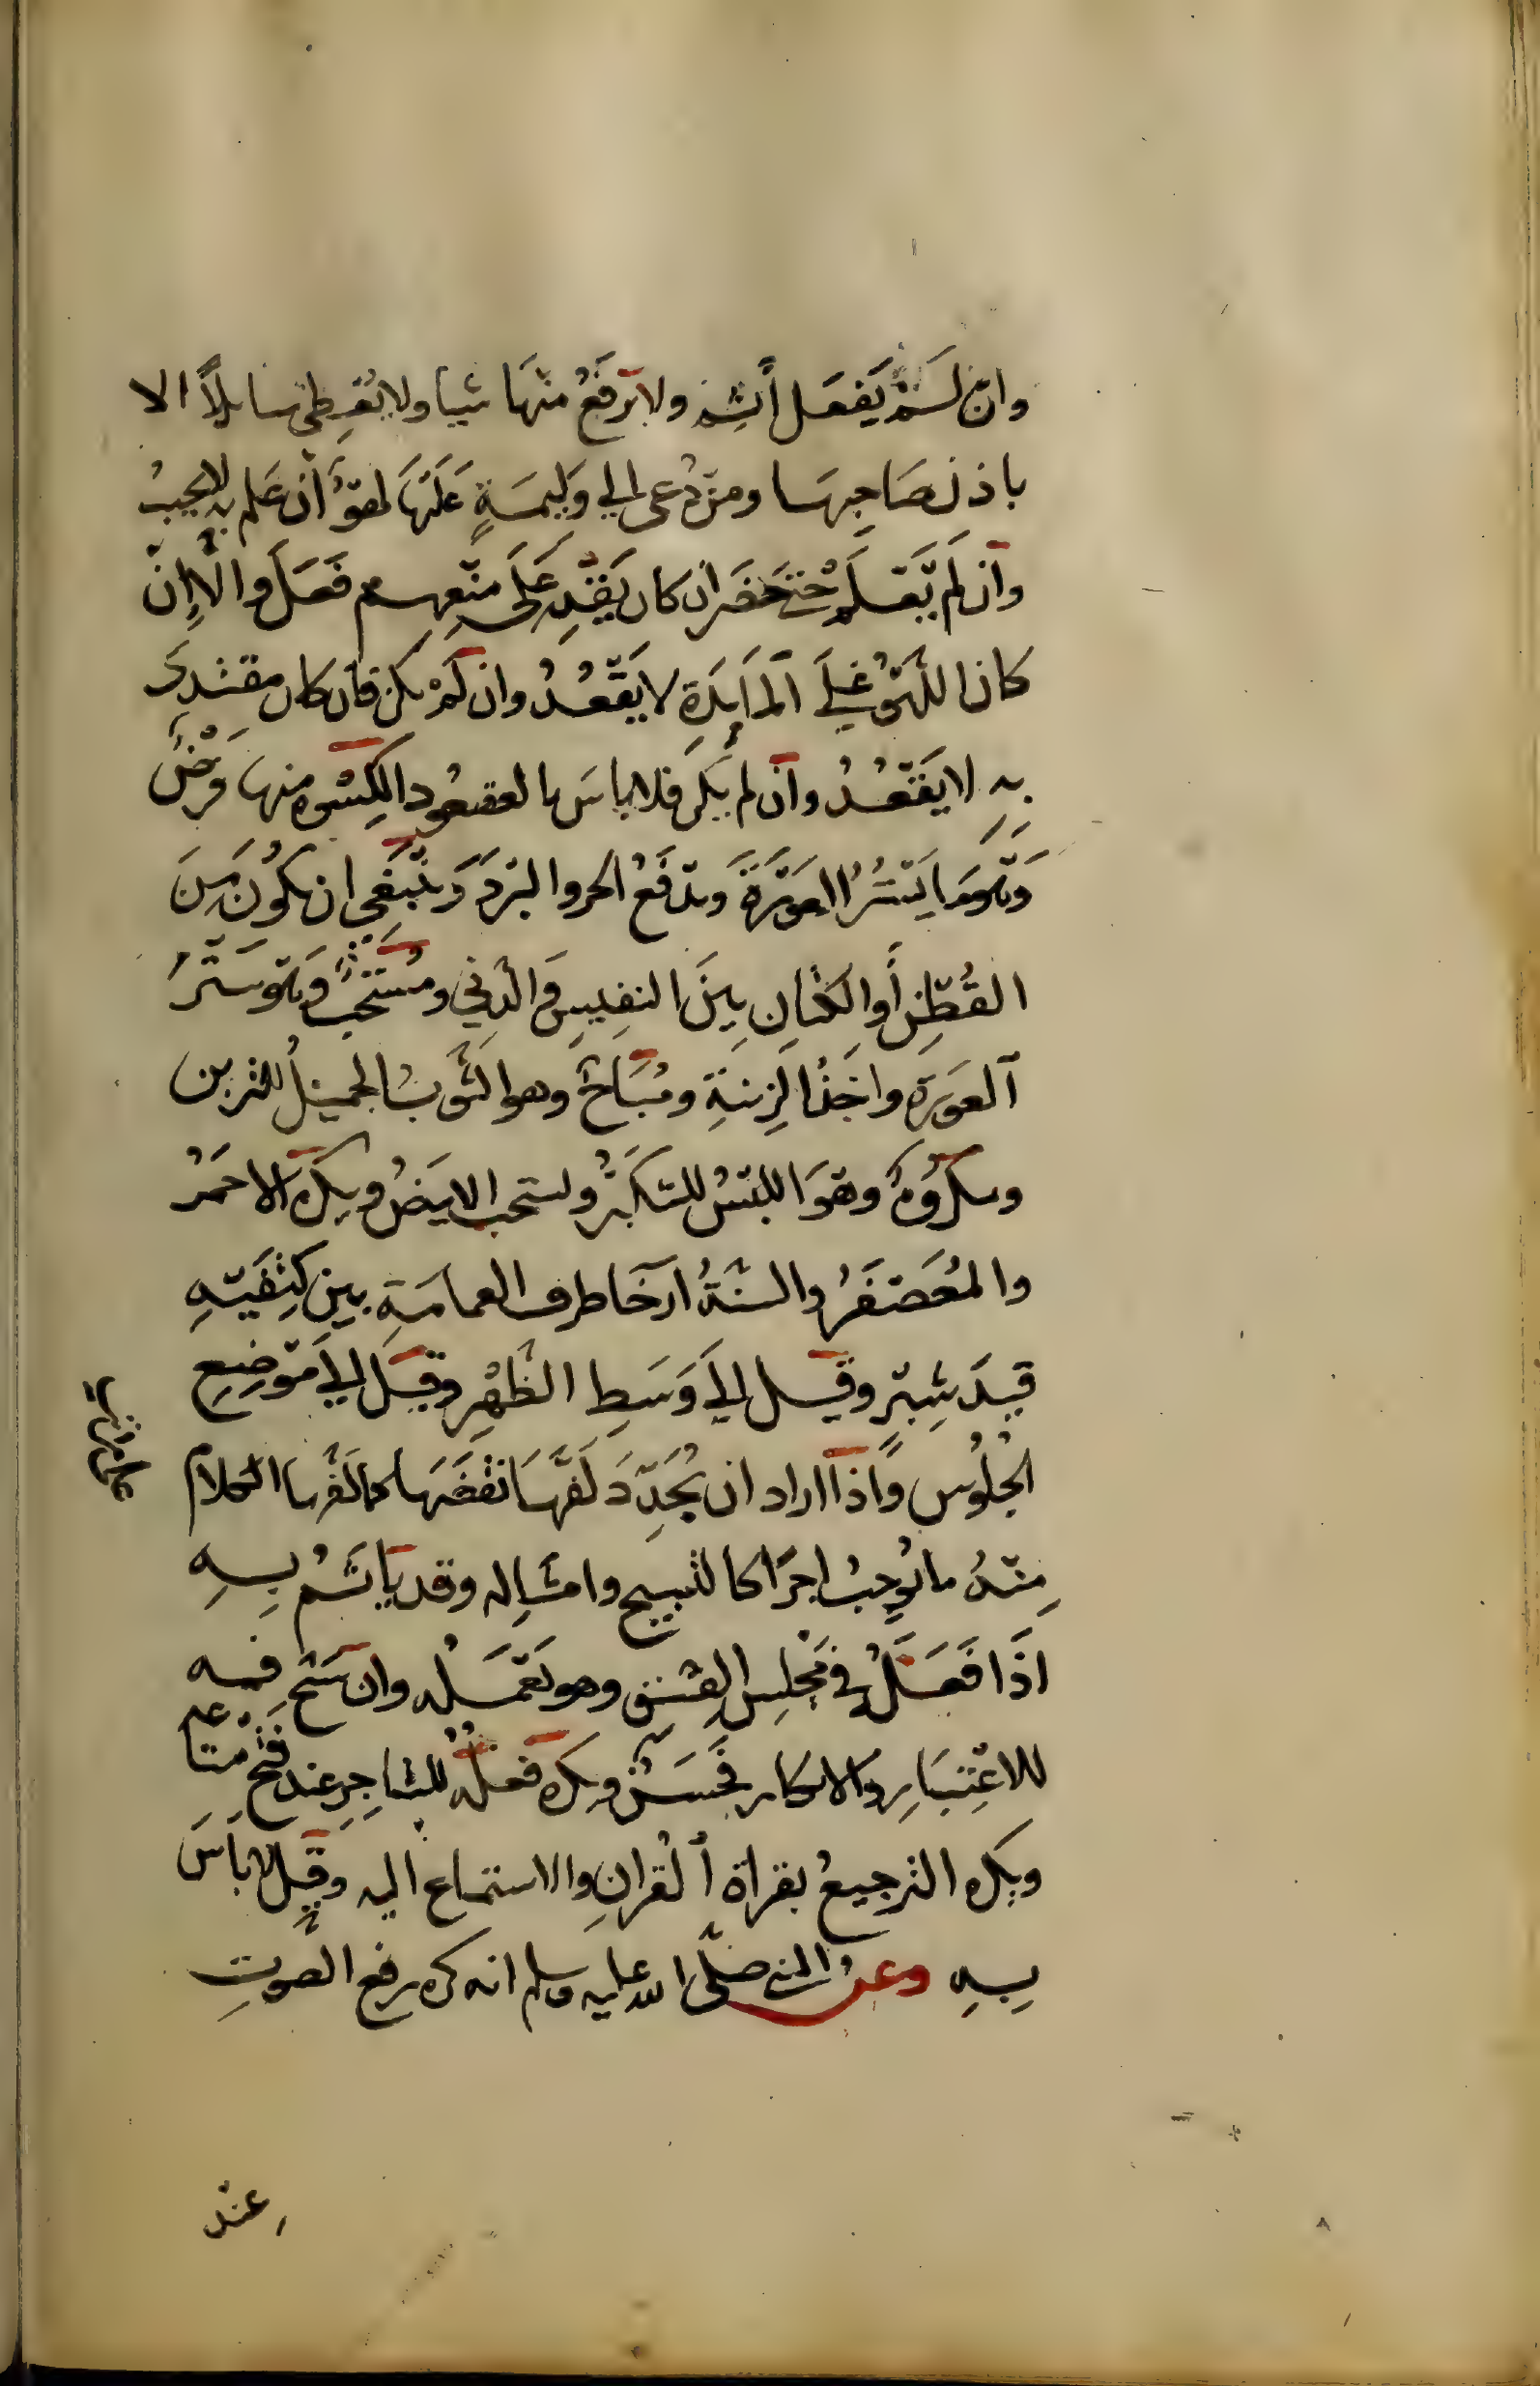 وان لم يفعل أثم ولا يرفع منها شيا ولا يعطي سايلاً الا
باذن صاحبها ومن دعى الي وليمة عليها لهو أن علم به لا يجيب
وان لم يعلم حتى حضر ان كان يقدر على منعهم فعل والا إن
كان اللهو على المايدة لا يقعد وان لم يكن فان كان مقتدى
به لا يقعد وان لم يكن فلا باس بالعقعود الكسوة منها فرض
وهو ما يستر العورة ويدفع الحر والبرد وينبغي ان يكون من
القطن أو الكتان بين النفيس والدني ومستحب وهو ستر
العورة واخذ الزينة ومباح وهو الثوب الجميل للتزين
ومكروه وهو اللبس للتكبر ويستحب الابيض ويكره الاحمر
والمعصفر والسنة ارخا طرف العمامة بين كتفيه
قيد شبر وقيل الي وسط الظهر وقيل الي موضع
الجلوس واذا اراد ان يجدد لفها نقضها كما لفها الكلام
منه ما يوجب اجرا كالتسبيح وامثاله وقد ياثم به
اذا فعله في مجلس الفسق وهو يعمله وان سبح فيه
للاعتبار والانكار فحسن ويكره فعله للتاجر عند فتح متاعه
ويكره الترجيع بقراة القران والاستماع اليه وقيل لا باس
به وعن النبي صلى الله عليه وسلم انه كره رفع الصوت
عند